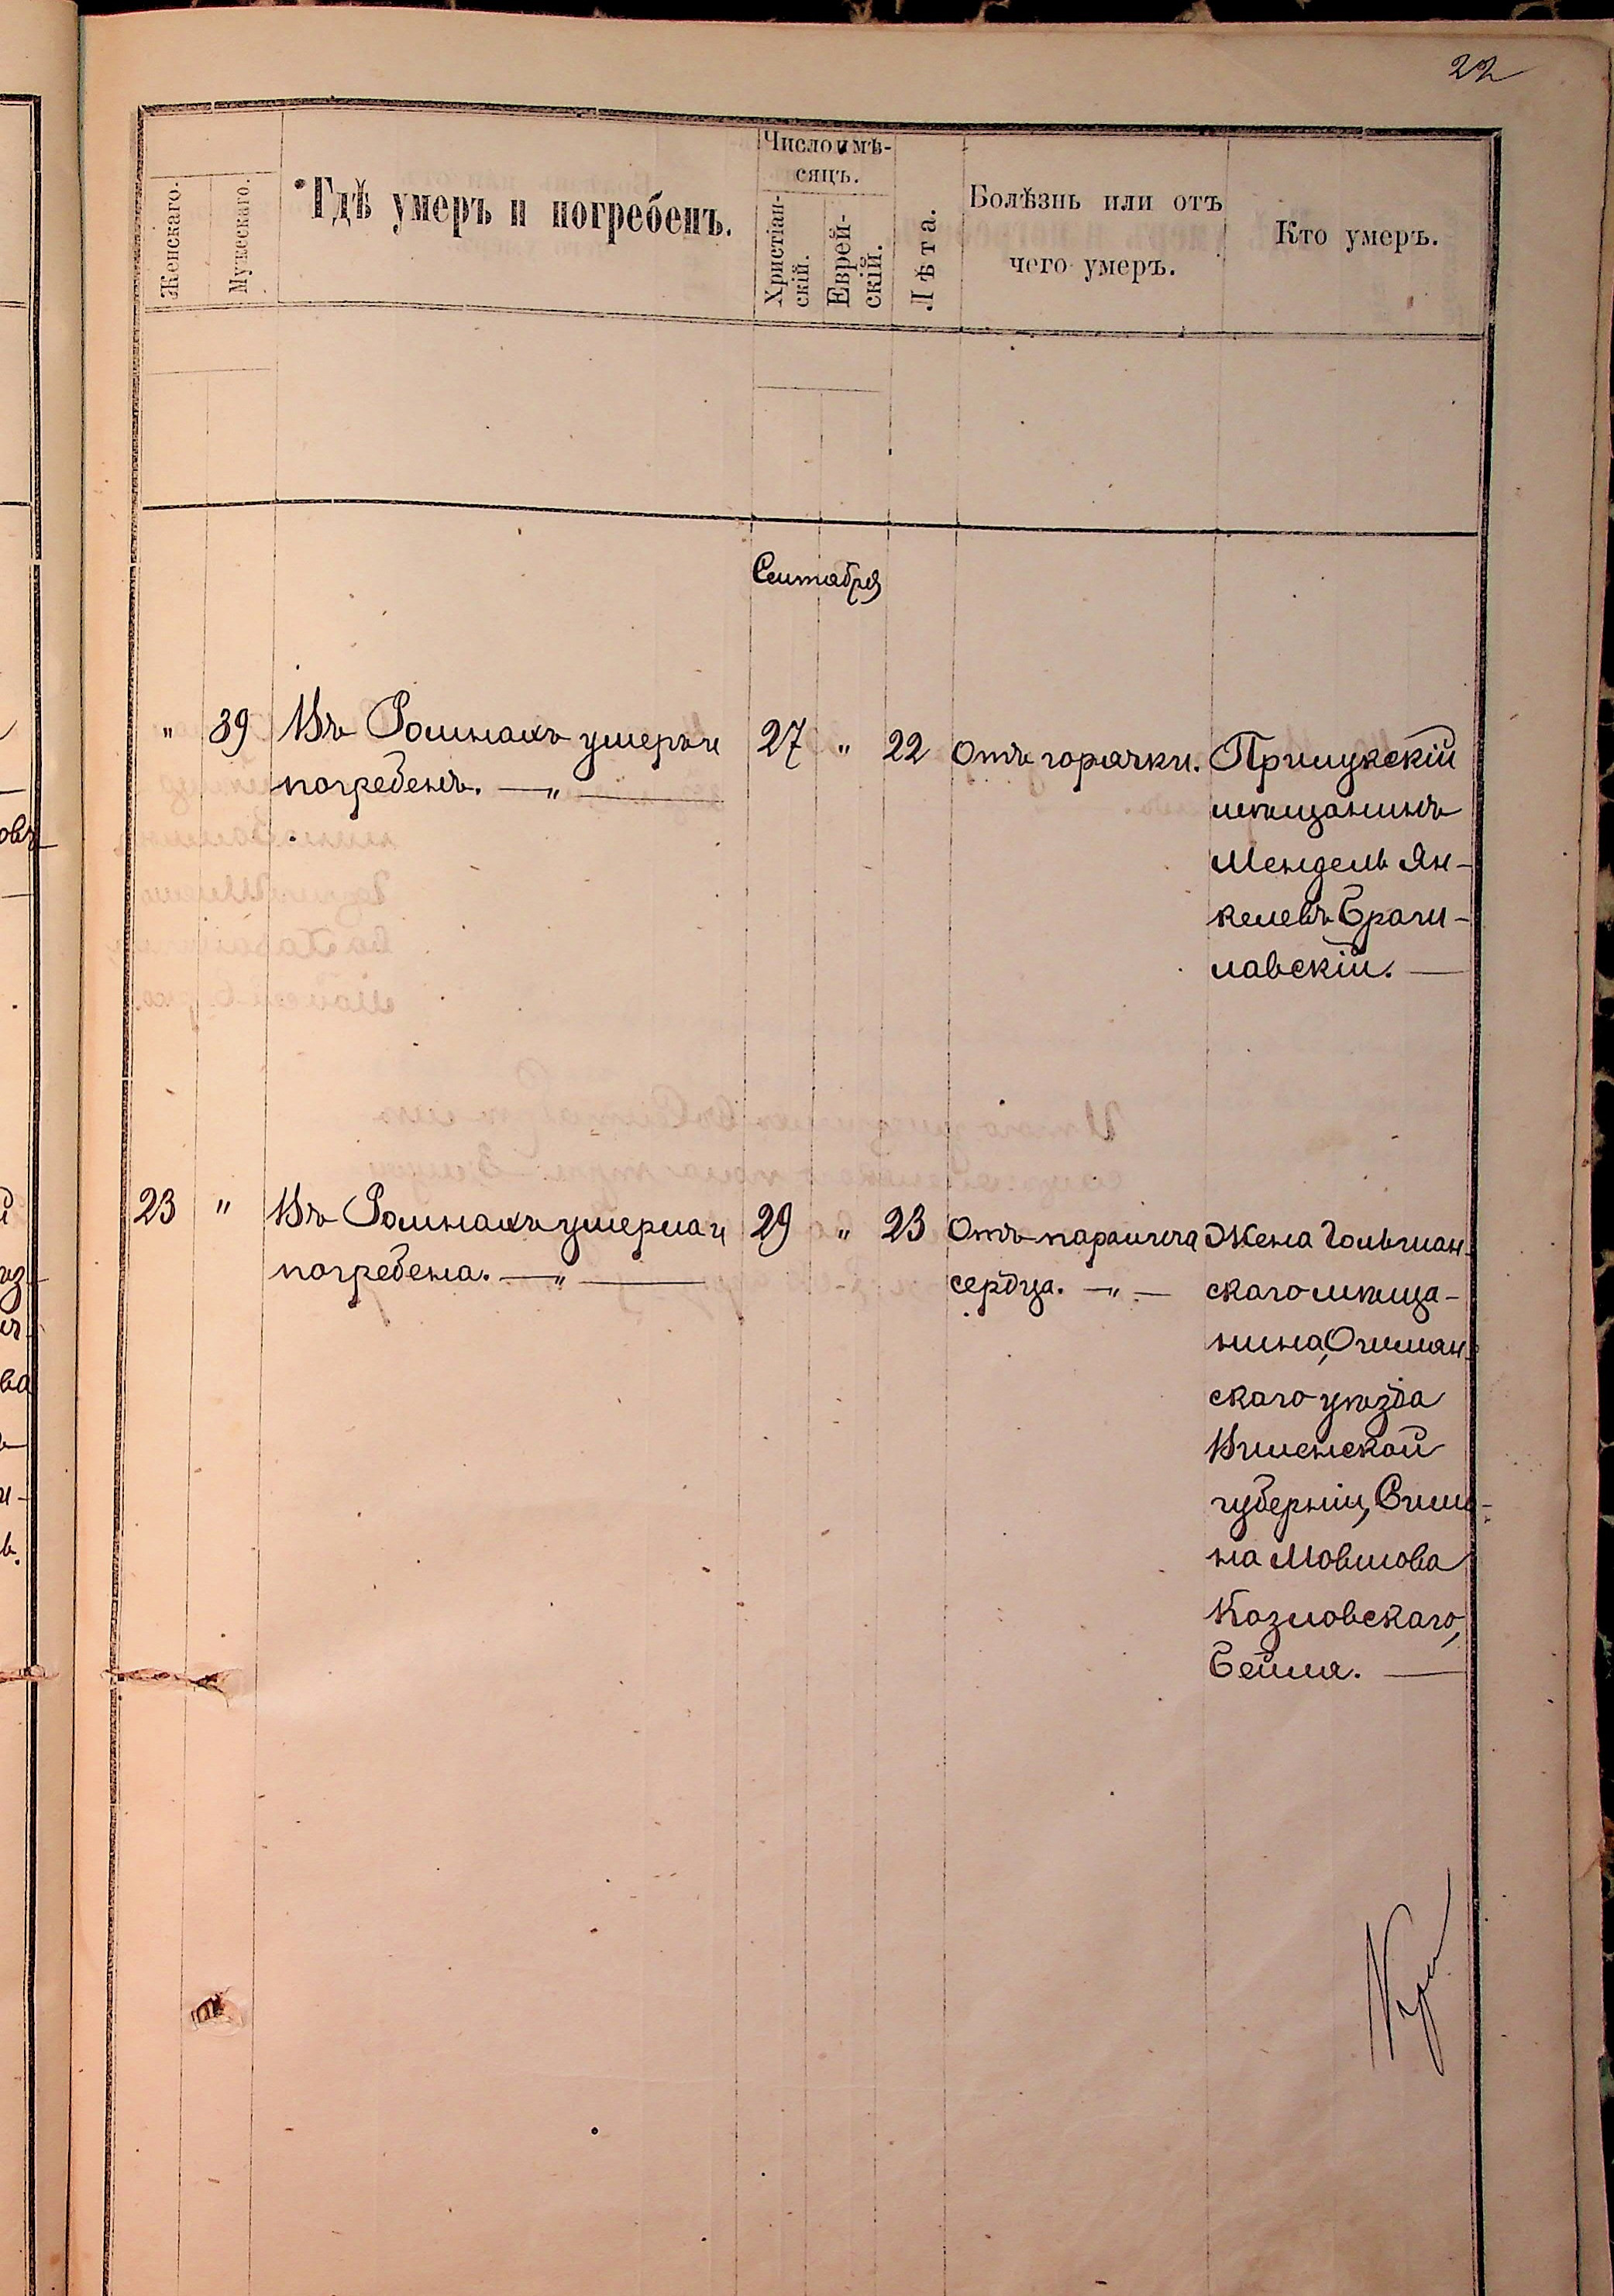 22
Женскаго.
Мужескаго.
Гдѣ умеръ и погребенъ.
Число и мѣ-
сяцъ.
Христіан-
скій.
Еврей-
скій.
Лѣта.
Болѣзнь или отъ
чего умеръ.
Кто умеръ.
Сентября
" 39 Въ Ромнахъ умеръ и 27 " 22 Отъ горячки. Прилукскій
погребенъ. — " — мѣщанинъ
Мендель Ян-
келевъ Браги-
лавскій. —
23 " Въ Ромнахъ умерла и 29 " 23 Отъ паралича Жена Гольшан-
погребена. — " — сердца. — " — скаго мѣща-
нина, Ошмян-
скаго уѣзда
Виленской
губерніи,
на Мовшова
Козловскаго,
Бейля. —